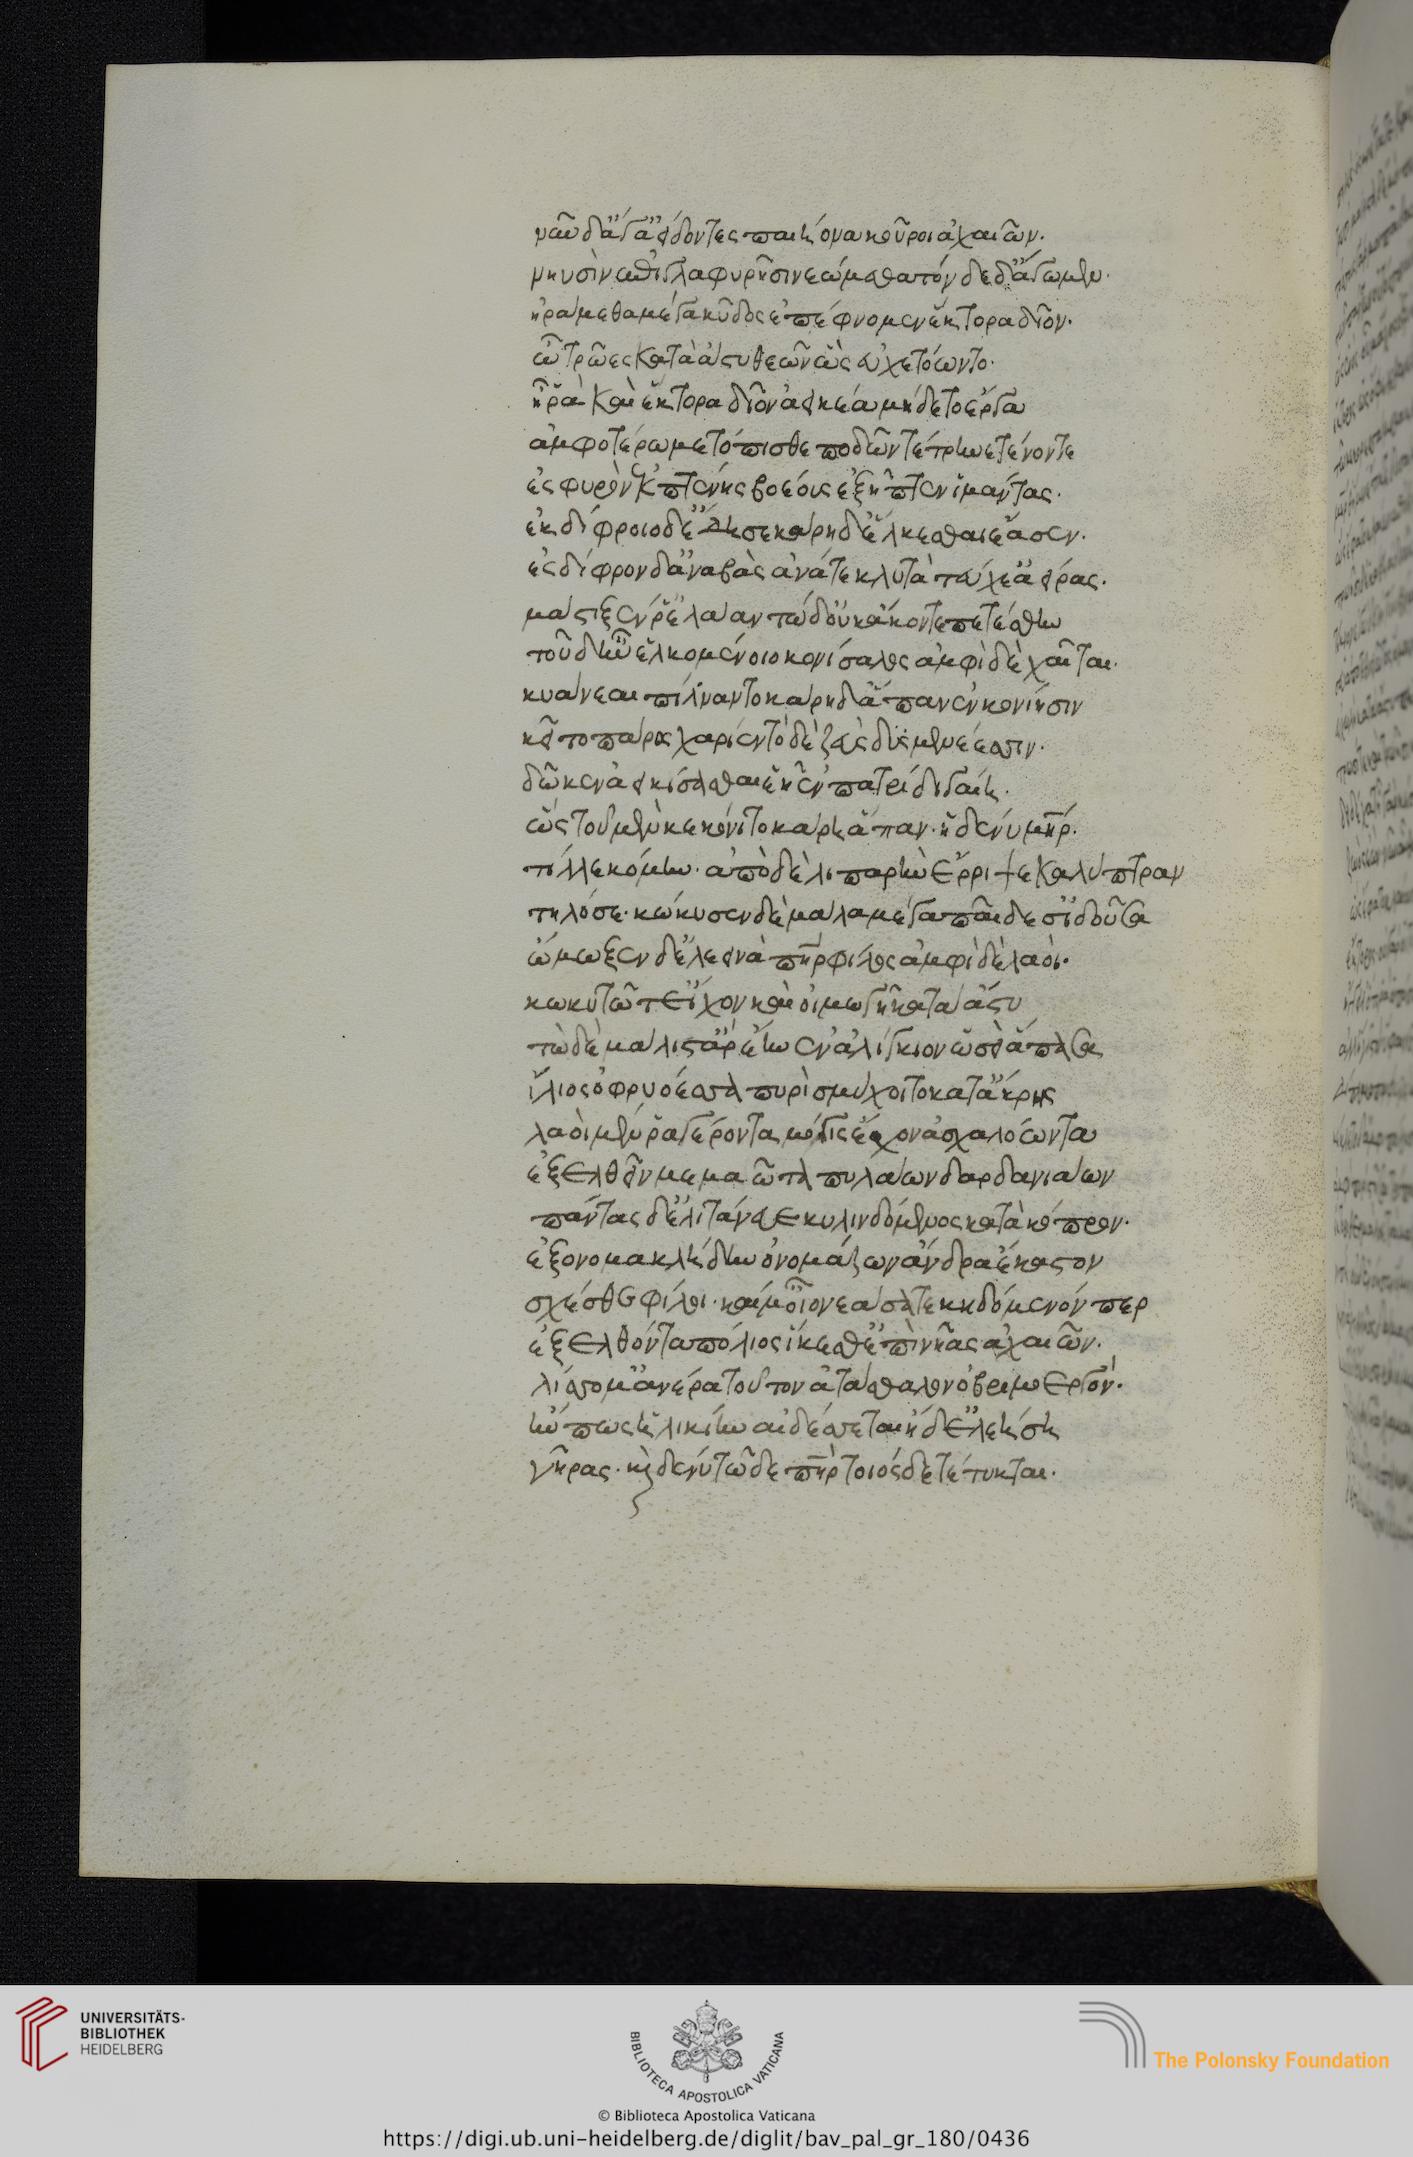 νῦν δ' ἄγ' ἀείδοντες παιήονα κοῦροι ἀχαιῶν.
νηυσὶν ἐπὶ γλαφυρῇσι νεώμεθα τόν δε δ' ἄγωμεν.
ἠράμεθα μέγα κῦδος ἐπέφνομεν ἕκτορα δῖον.
ᾧ τρῶες κατὰ ἄστυ θεῷ ὣς εὐχετόωντο.
ἦ ῥα καὶ ἕκτορα δῖον ἀεικέα μήδετο ἔργα
ἀμφοτέρω μετόπισθε ποδῶν τέτρηνε τένοντε
ἐς σφυρὸν ἐκ πτέρνης βοέους ἐξῆπτεν ἱμάντας.
ἐκ δίφροιο δ' ἔδησε κάρη δ' ἕλκεσθαι ἔασεν.
ἐς δίφρον δ' ἀναβὰς ἀνά τε κλυτὰ τεύχε' ἀείρας.
μάστιξέν ῥ' ἐλάαν τὼ δ' οὐκ ἄκοντε πετέσθην
τοῦ δ' ἦν ἑλκομένοιο κονίσαλος ἀμφὶ δὲ χαῖται.
κυάνεαι πίλναντο κάρη δ' ἅπαν ἐν κονίησιν
κεῖτο πάρος χαρίεν τότε δὲ ζεὺς δυσμενέεσσιν.
δῶκεν ἀεικίσσασθαι ἑῇ ἐν πατρίδι γαίη.
ὣς τοῦ μὲν κεκόνιτο κάρη ἅπαν. ἡ δέ νυ μήτηρ.
τίλλε κόμην. ἀπὸ δὲ λιπαρὴν ἔρριψε καλύπτραν
τηλόσε. κώκυσεν δὲ μάλα μέγα παῖδ' ἐσιδοῦσα
ᾤμωξεν δ' ἐλεεινὰ πατὴρ φίλος ἀμφὶ δὲ λαοί.
κωκυτῷ τ' εἴχοντο καὶ οἰμωγῇ κατὰ ἄστυ
τῷ δὲ μάλιστ' ἄρ' ἔην ἐναλίγκιον ὡς εἰ ἅπασα
ἴλιος ὀφρυόεσσα πυρὶ σμύχοιτο κατ' ἄκρης
λαοὶ μέν ῥα γέροντα μόγις ἔχον ἀσχαλόωντα
ἐξελθεῖν μεμαῶτα πυλάων δαρδανιάων
πάντας δ' ἐλιτάνευε κυλινδόμενος κατὰ κόπρον.
ἐξονομακλήδην ὀνομάζων ἄνδρα ἕκαστον
σχέσθε φίλοι. καί μ' οἶον ἐάσατε κηδόμενόν περ
ἐξελθόντα πόλιος ἱκέσθ' ἐπὶ νῆας ἀχαιῶν.
λίσσομ' ἀνέρα τοῦτον ἀτάσθαλον ὀβριμοεργόν.
ἤν πως ἡλικίην αἰδέσσεται ἠδ' ἐλεήση
γῆρας. καὶ δέ νυ τῷ δε πατὴρ τοιόσδε τέτυκται.
UNIVERSITÄTS-
BIBLIOTHEK
HEIDELBERG
BIBLIOTECA APOSTOLICA VATICANA
The Polonsky Foundation
© Biblioteca Apostolica Vaticana
https://digi.ub.uni-heidelberg.de/diglit/bav_pal_gr_180/0436